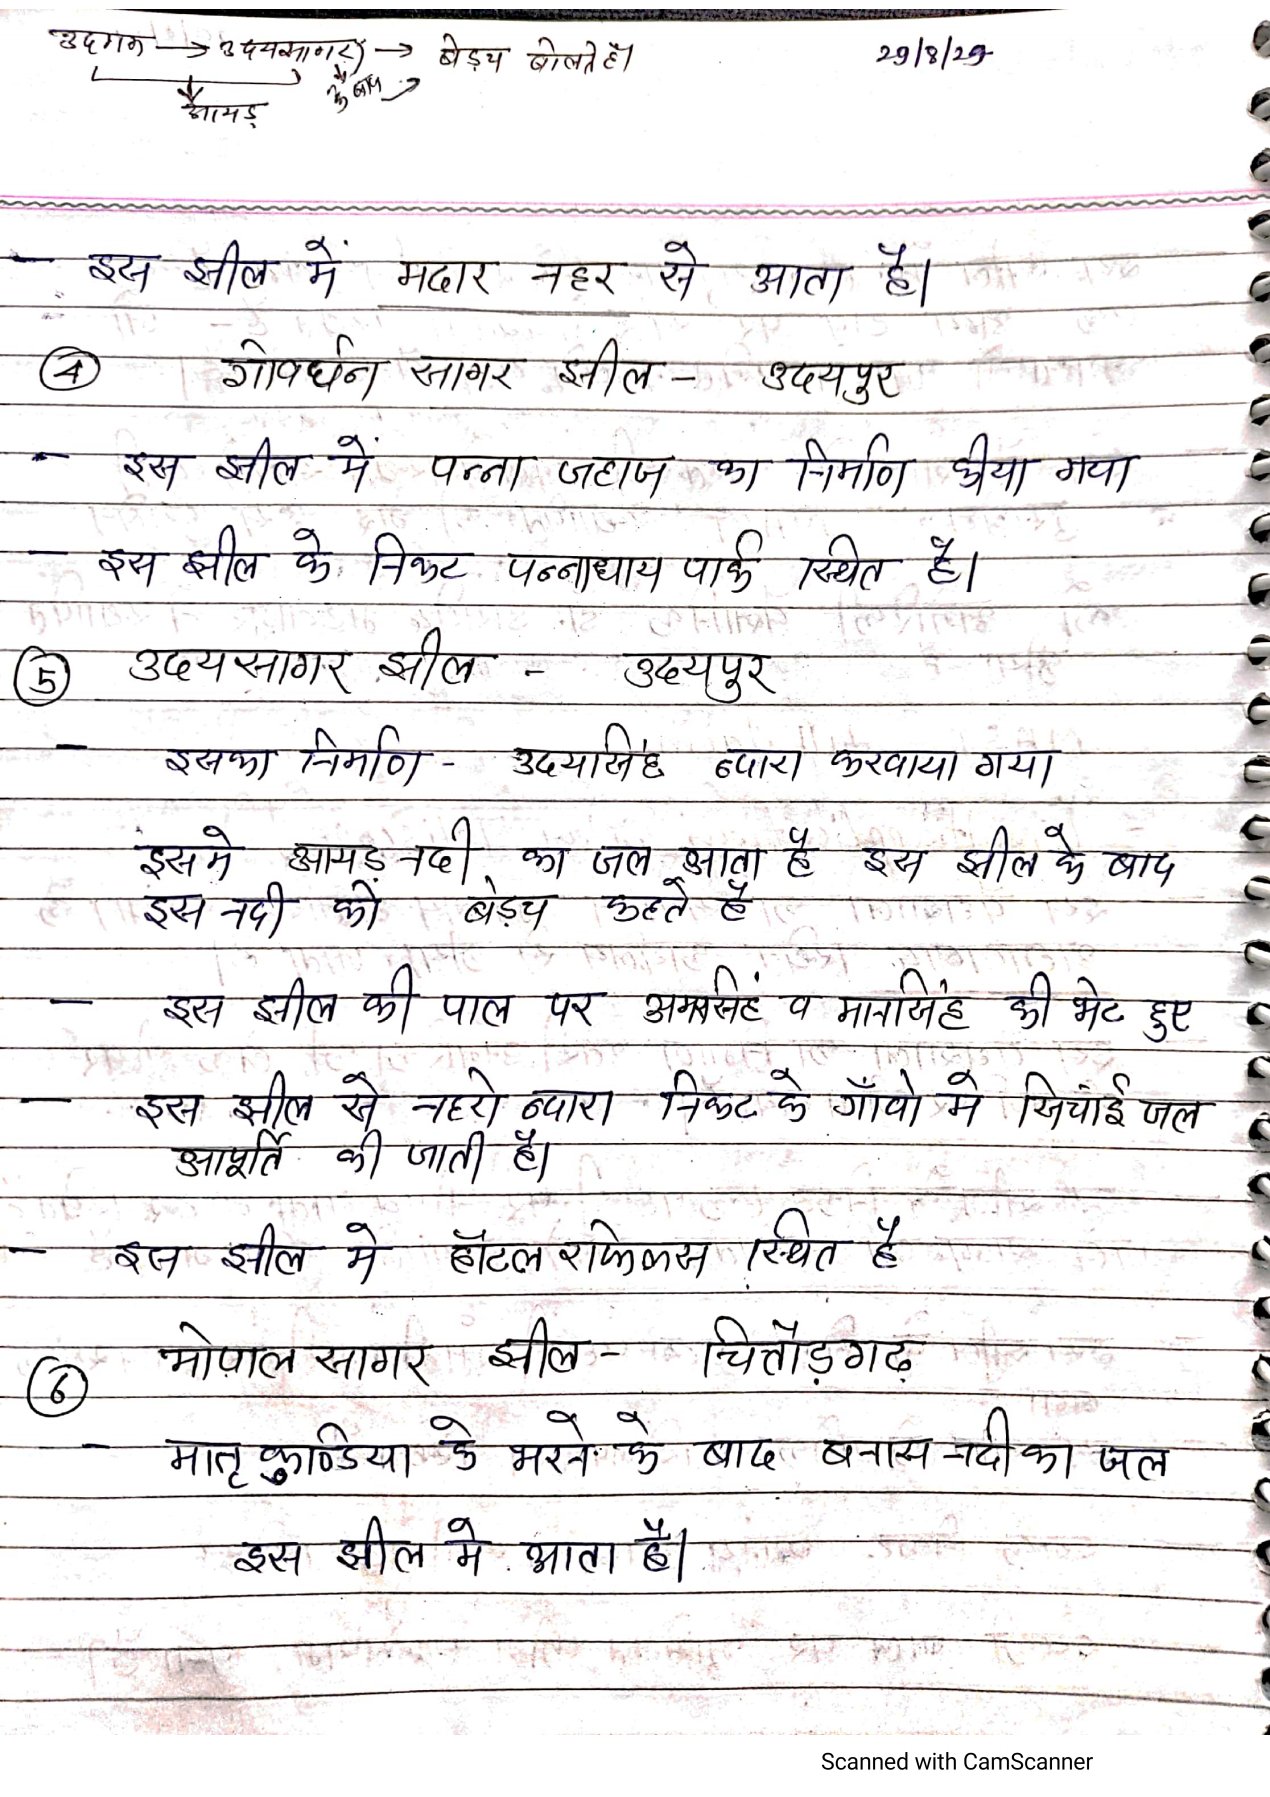 उदगम → उदयसागर → बेड़च बोलते है।
29/8/29
आयड़
के बाद
- इस झील में मदार नहर से आता है।
④ गोवर्धन सागर झील - उदयपुर
- इस झील में पन्ना जहाज का निर्माण कीया गया
- इस झील के निकट पन्नाधाय पार्क स्थित है।
⑤ उदयसागर झील - उदयपुर
- इसका निर्माण - उदयसिंह द्वारा करवाया गया
इसमे आयड़ नदी का जल आता है इस झील के बाद
इस नदी को बेड़च कहते है
- इस झील की पाल पर अमरसिहं व मानसिंह की भेट हुए
- इस झील से नहरो द्वारा निकट के गाँवो मे सिचांई जल
आपूर्ति की जाती है।
- इस झील मे हॉटल रफेिलस स्थित है
⑥ भोपाल सागर झील - चित्तौड़गढ़
- मातृकुण्डिया के भरने के बाद बनास नदी का जल
इस झील मे आता है।
Scanned with CamScanner